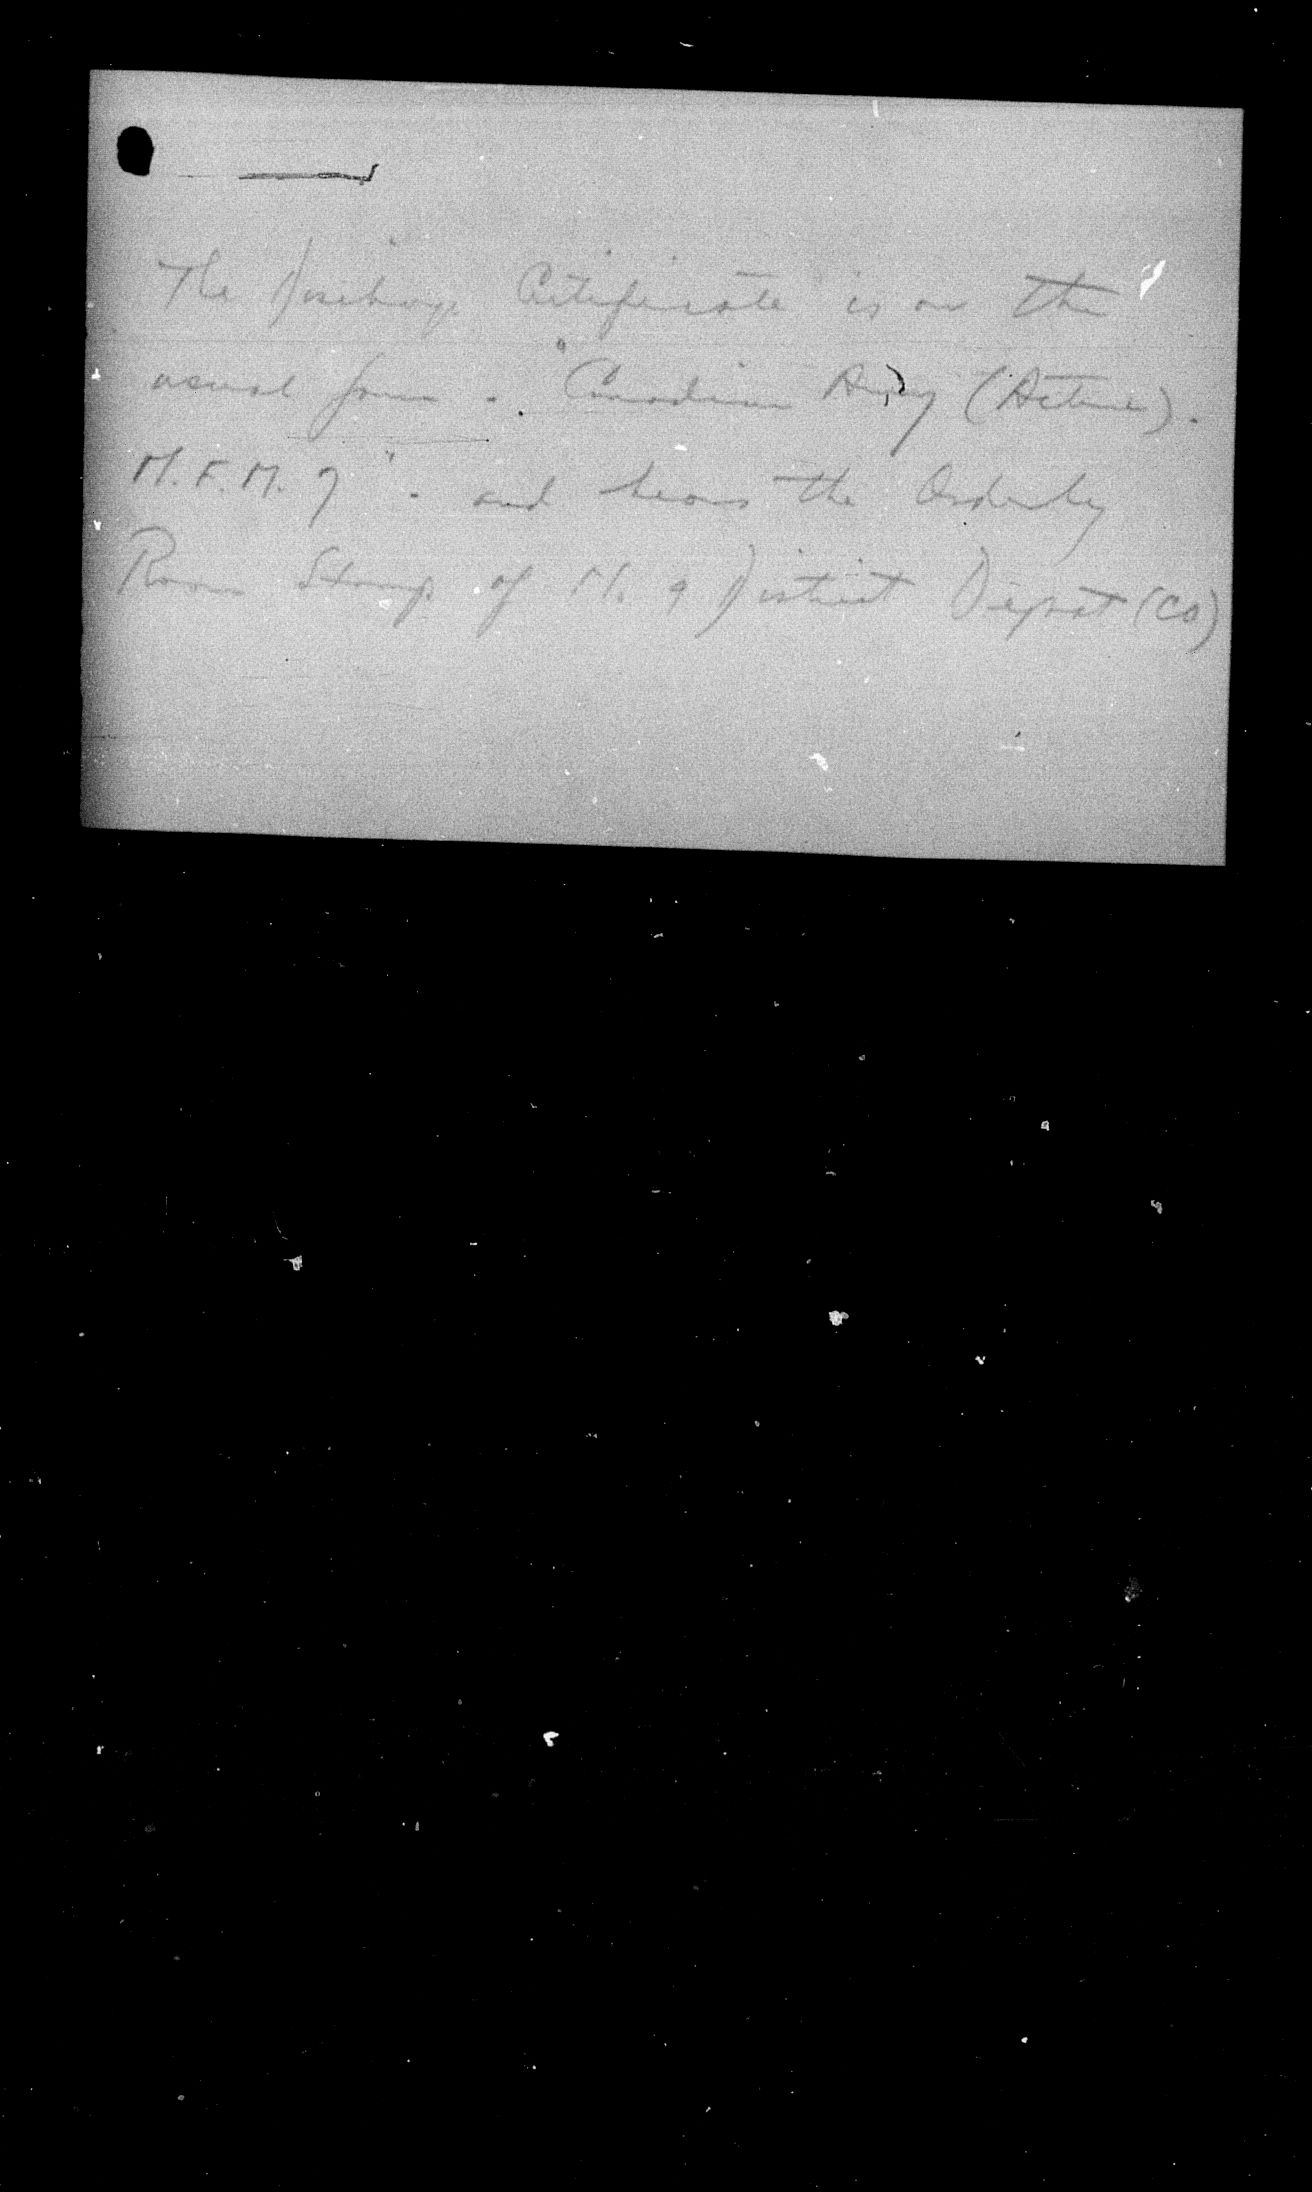 The Discharge Certificate is on the
usual form - "Canadian Army (Active).
M.F.M. 7" - and bears the Orderly
Room Stamp of No. 9 District Depot (CA)